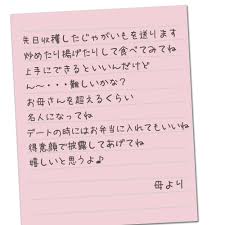 先日収穫したじゃがいもを送ります
炒めたり揚げたりして食べてみてね
上手にできるといいんだけど
ん～・・・難しいかな?
お母さんを超えるくらい
名人になってね
デートの時にはお弁当に入れてもいいね
得意顔で披露してあげてね
嬉しいと思うよ♪
母より